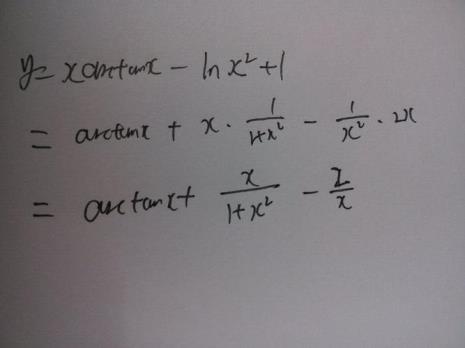 y = x arctanx − ln x² + 1
= arctanx + x · 1/(1+x²) − 1/x² · 2x
= arctanx + x/(1+x²) − 2/x